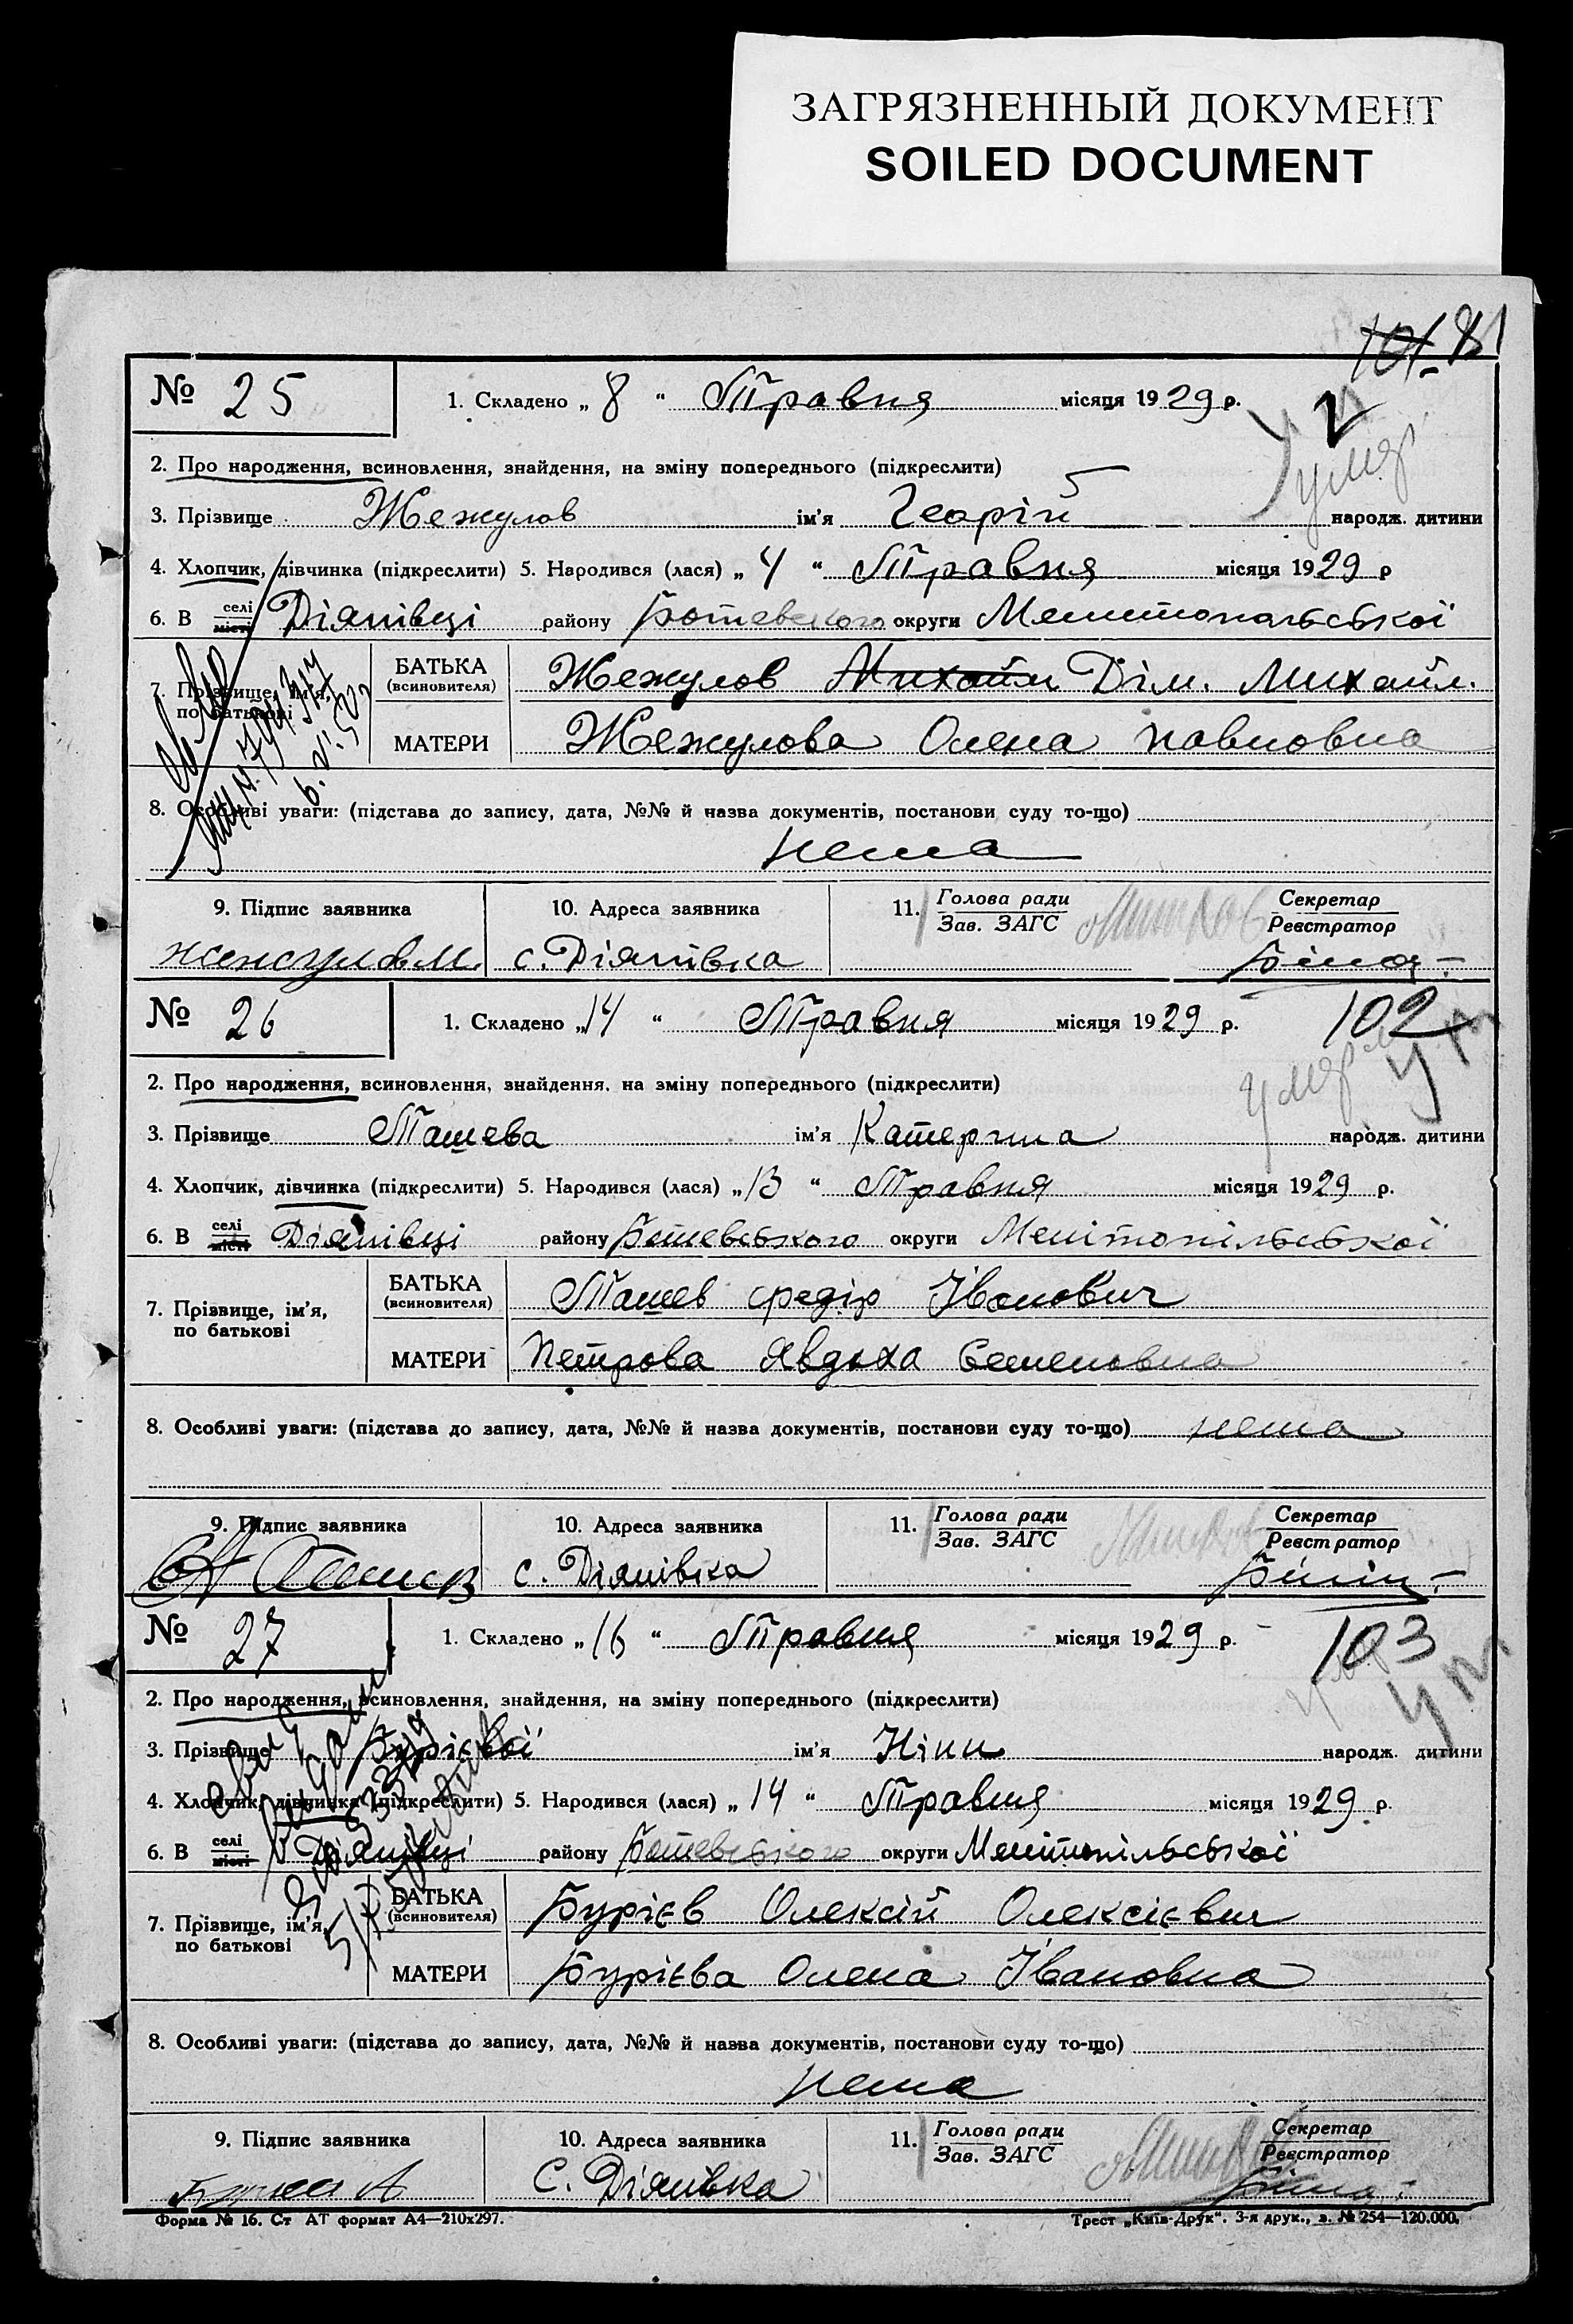 ЗАГРЯЗНЕННЫЙ ДОКУМЕНТ
SOILED DOCUMENT
№ 25
1. Складено „ 8 “ Травня місяця 1929 р.
2. Про народження, всиновлення, знайдення, на зміну попереднього (підкреслити)
3. Прізвище Жежулов ім'я Георгій народж. дитини
4. Хлопчик, дівчинка (підкреслити) 5. Народився (лася) „ 4 “ Травня місяця 1929 р
6. В селі місті Діянівці району Ботевського округи Мелитопольської
7. Прізвище, ім'я, по батькові
БАТЬКА (всиновителя) Жежулов Михайл Дім. Михайл.
МАТЕРИ Жежулова Олена Павловна
8. Особливі уваги: (підстава до запису, дата, №№ й назва документів, постанови суду то-що)
нема
9. Підпис заявника 10. Адреса заявника 11. Голова ради Зав. ЗАГС Секретар Реєстратор
с. Діянівка
№ 26
1. Складено „14 “ Травня місяця 1929 р. 102
2. Про народження, всиновлення, знайдення, на зміну попереднього (підкреслити)
3. Прізвище Ташева ім'я Катерина народж. дитини
4. Хлопчик, дівчинка (підкреслити) 5. Народився (лася) „13 “ Травня місяця 1929 р.
6. В селі місті Діянівці району Ботевського округи Мелітопільської
7. Прізвище, ім'я, по батькові
БАТЬКА (всиновителя) Ташев Федір Іванович
МАТЕРИ Петрова Явдоха Семеновна
8. Особливі уваги: (підстава до запису, дата, №№ й назва документів, постанови суду то-що) нема
9. Підпис заявника 10. Адреса заявника 11. Голова ради Зав. ЗАГС Секретар Реєстратор
с. Діянівка
№ 27
1. Складено „ 16 “ Травня місяця 1929 р. 103
2. Про народження, всиновлення, знайдення, на зміну попереднього (підкреслити)
3. Прізвище Бурієвої ім'я Ніни народж. дитини
4. Хлопчик, дівчинка (підкреслити) 5. Народився (лася) „ 14 “ Травня місяця 1929 р.
6. В селі місті Діянівці району Ботевського округи Мелітопільської
7. Прізвище, ім'я, по батькові
БАТЬКА (всиновителя) Бурієв Олексій Олексієвич
МАТЕРИ Бурієва Олена Івановна
8. Особливі уваги: (підстава до запису, дата, №№ й назва документів, постанови суду то-що)
нема
9. Підпис заявника 10. Адреса заявника 11. Голова ради Зав. ЗАГС Секретар Реєстратор
С. Діянівка
Форма № 16. Ст АТ формат А4—210х297. Трест „Київ-Друк“. 3-я друк., з. № 254—120.000.